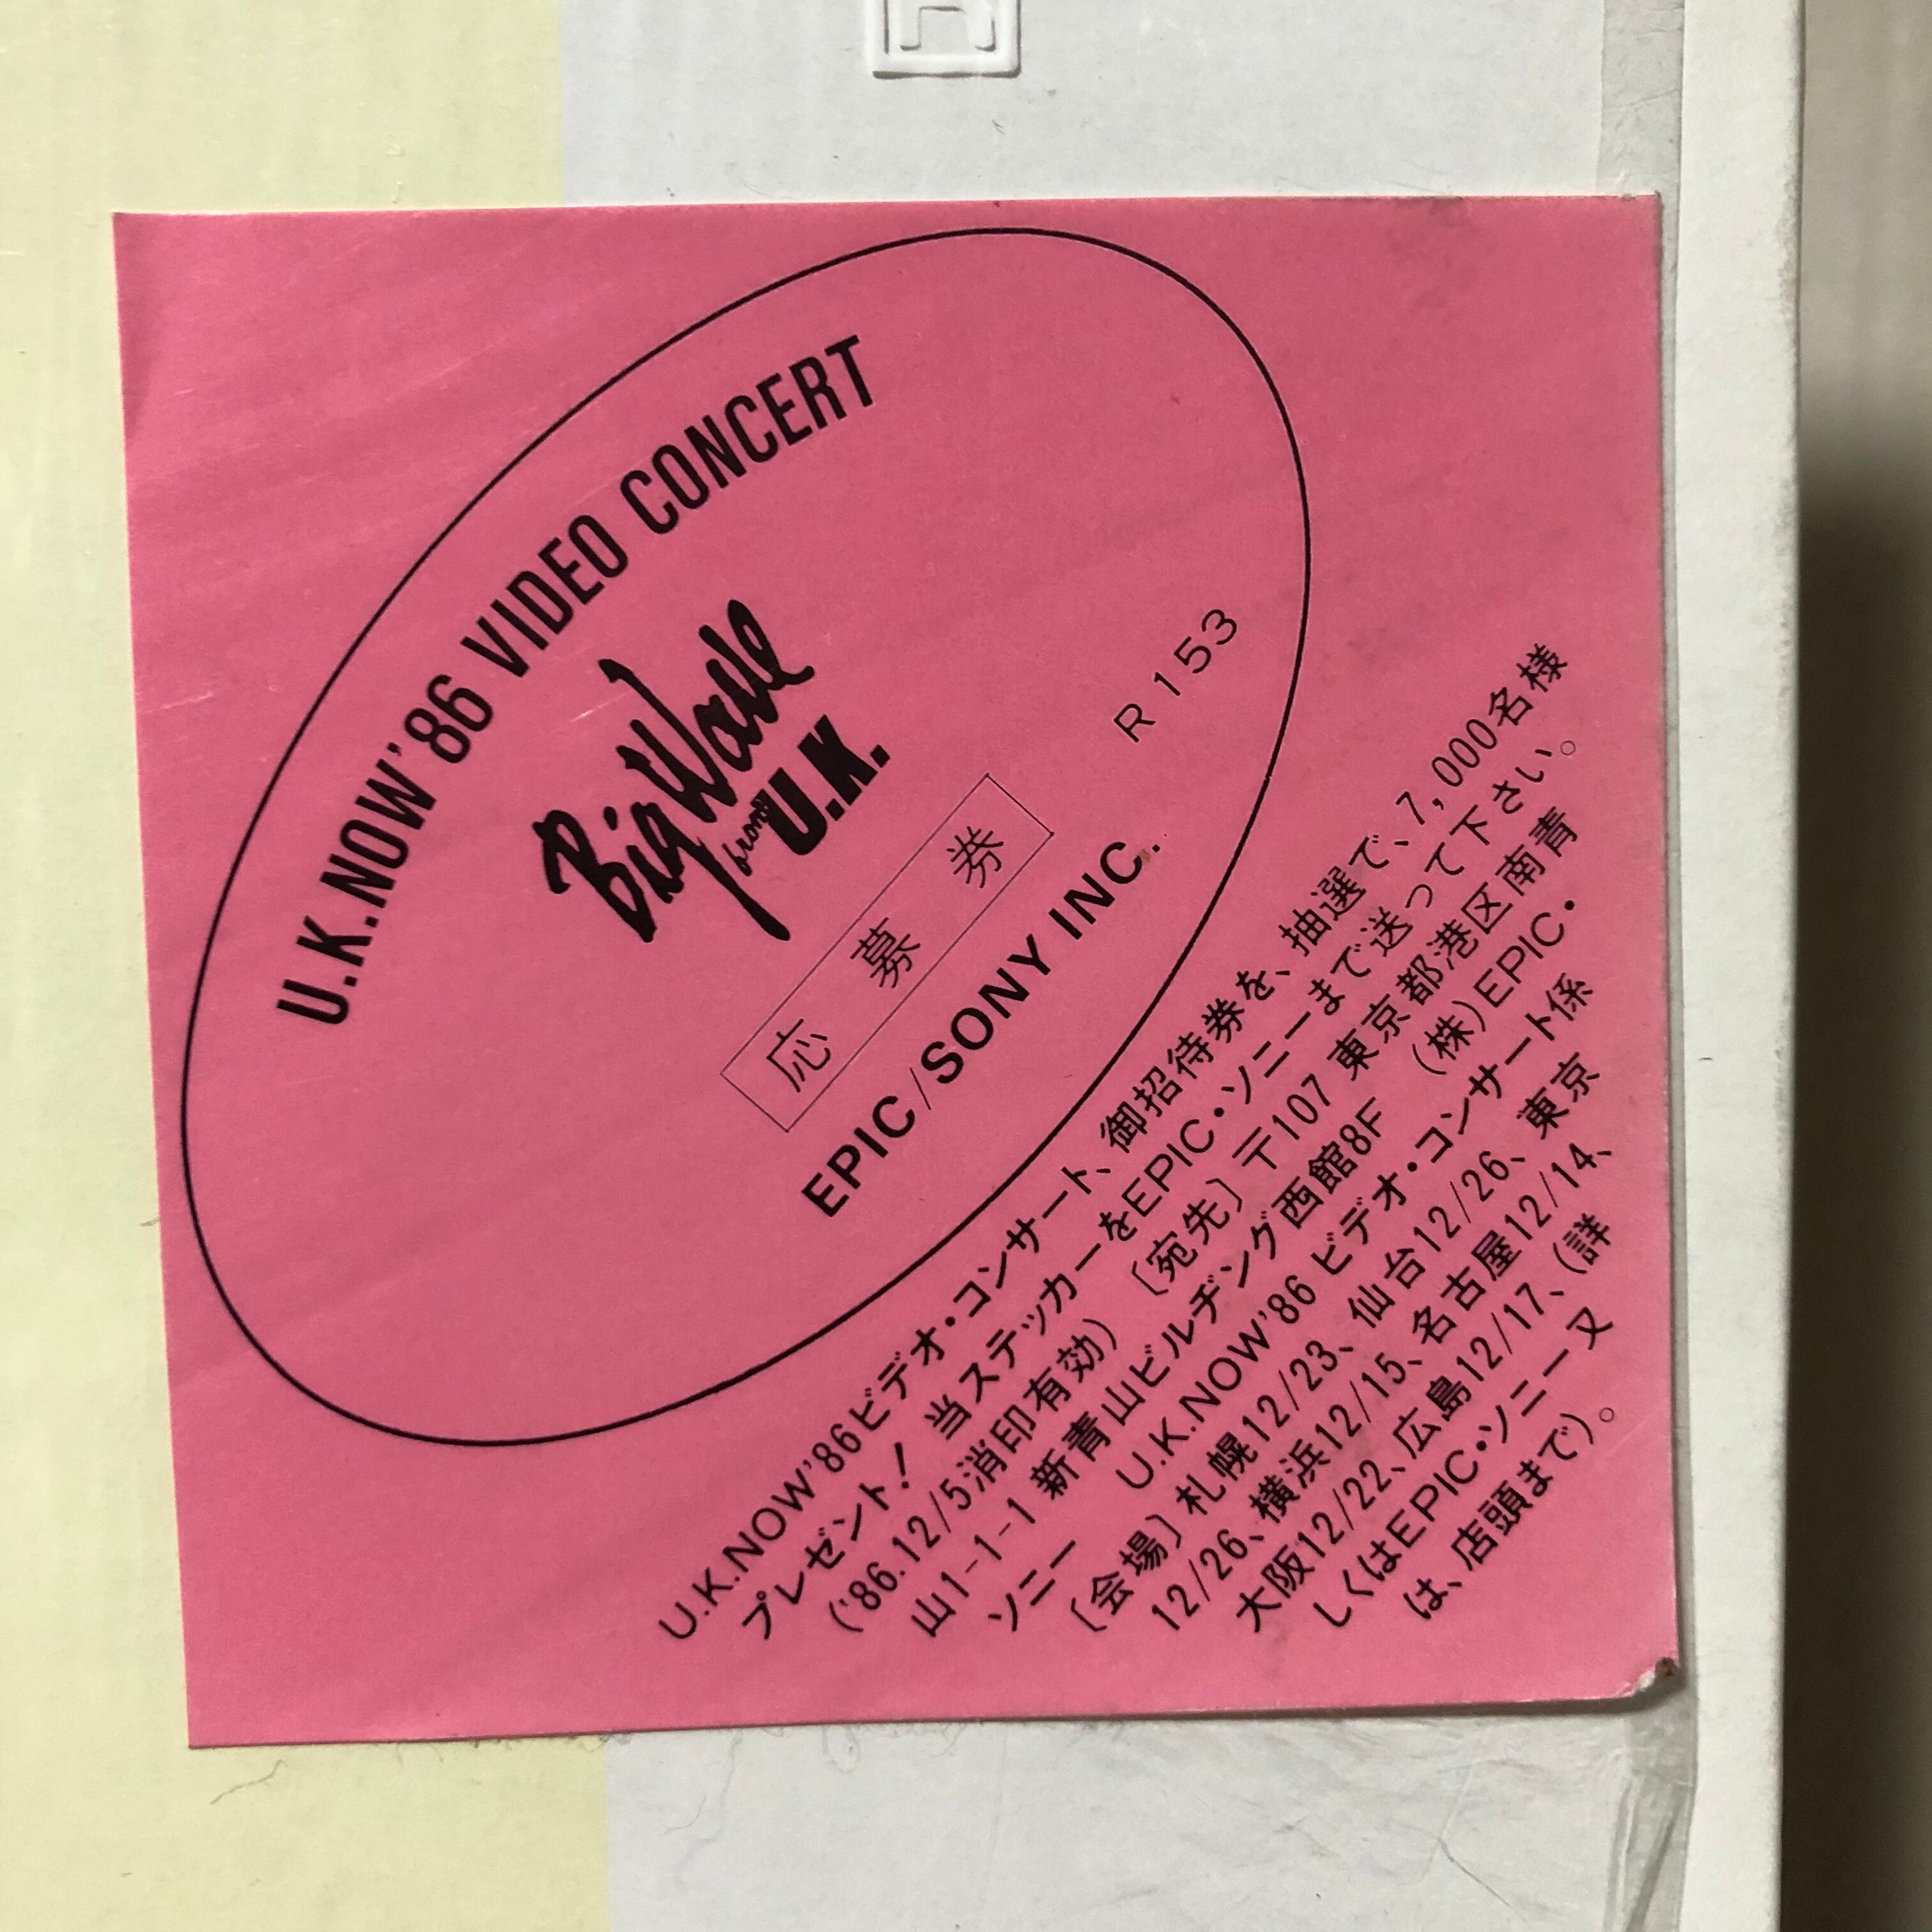 U.K.NOW'86 VIDEO CONCERT
Big Wave
from U.K.
応募券
R153
EPIC/SONY INC.
U.K.NOW'86ビデオ・コンサート、御招待券を、抽選で、7,000名様
プレゼント! 当ステッカーをEPIC・ソニーまで送って下さい。
('86.12/5消印有効)〔宛先〕〒107 東京都港区南青
山1-1-1 新青山ビルヂング西館8F (株)EPIC・
ソニー U.K.NOW'86 ビデオ・コンサート係
〔会場〕札幌12/23、仙台12/26、東京
12/26、横浜12/15、名古屋12/14、
大阪12/22、広島12/17、(詳
しくはEPIC・ソニー又
は、店頭まで)。